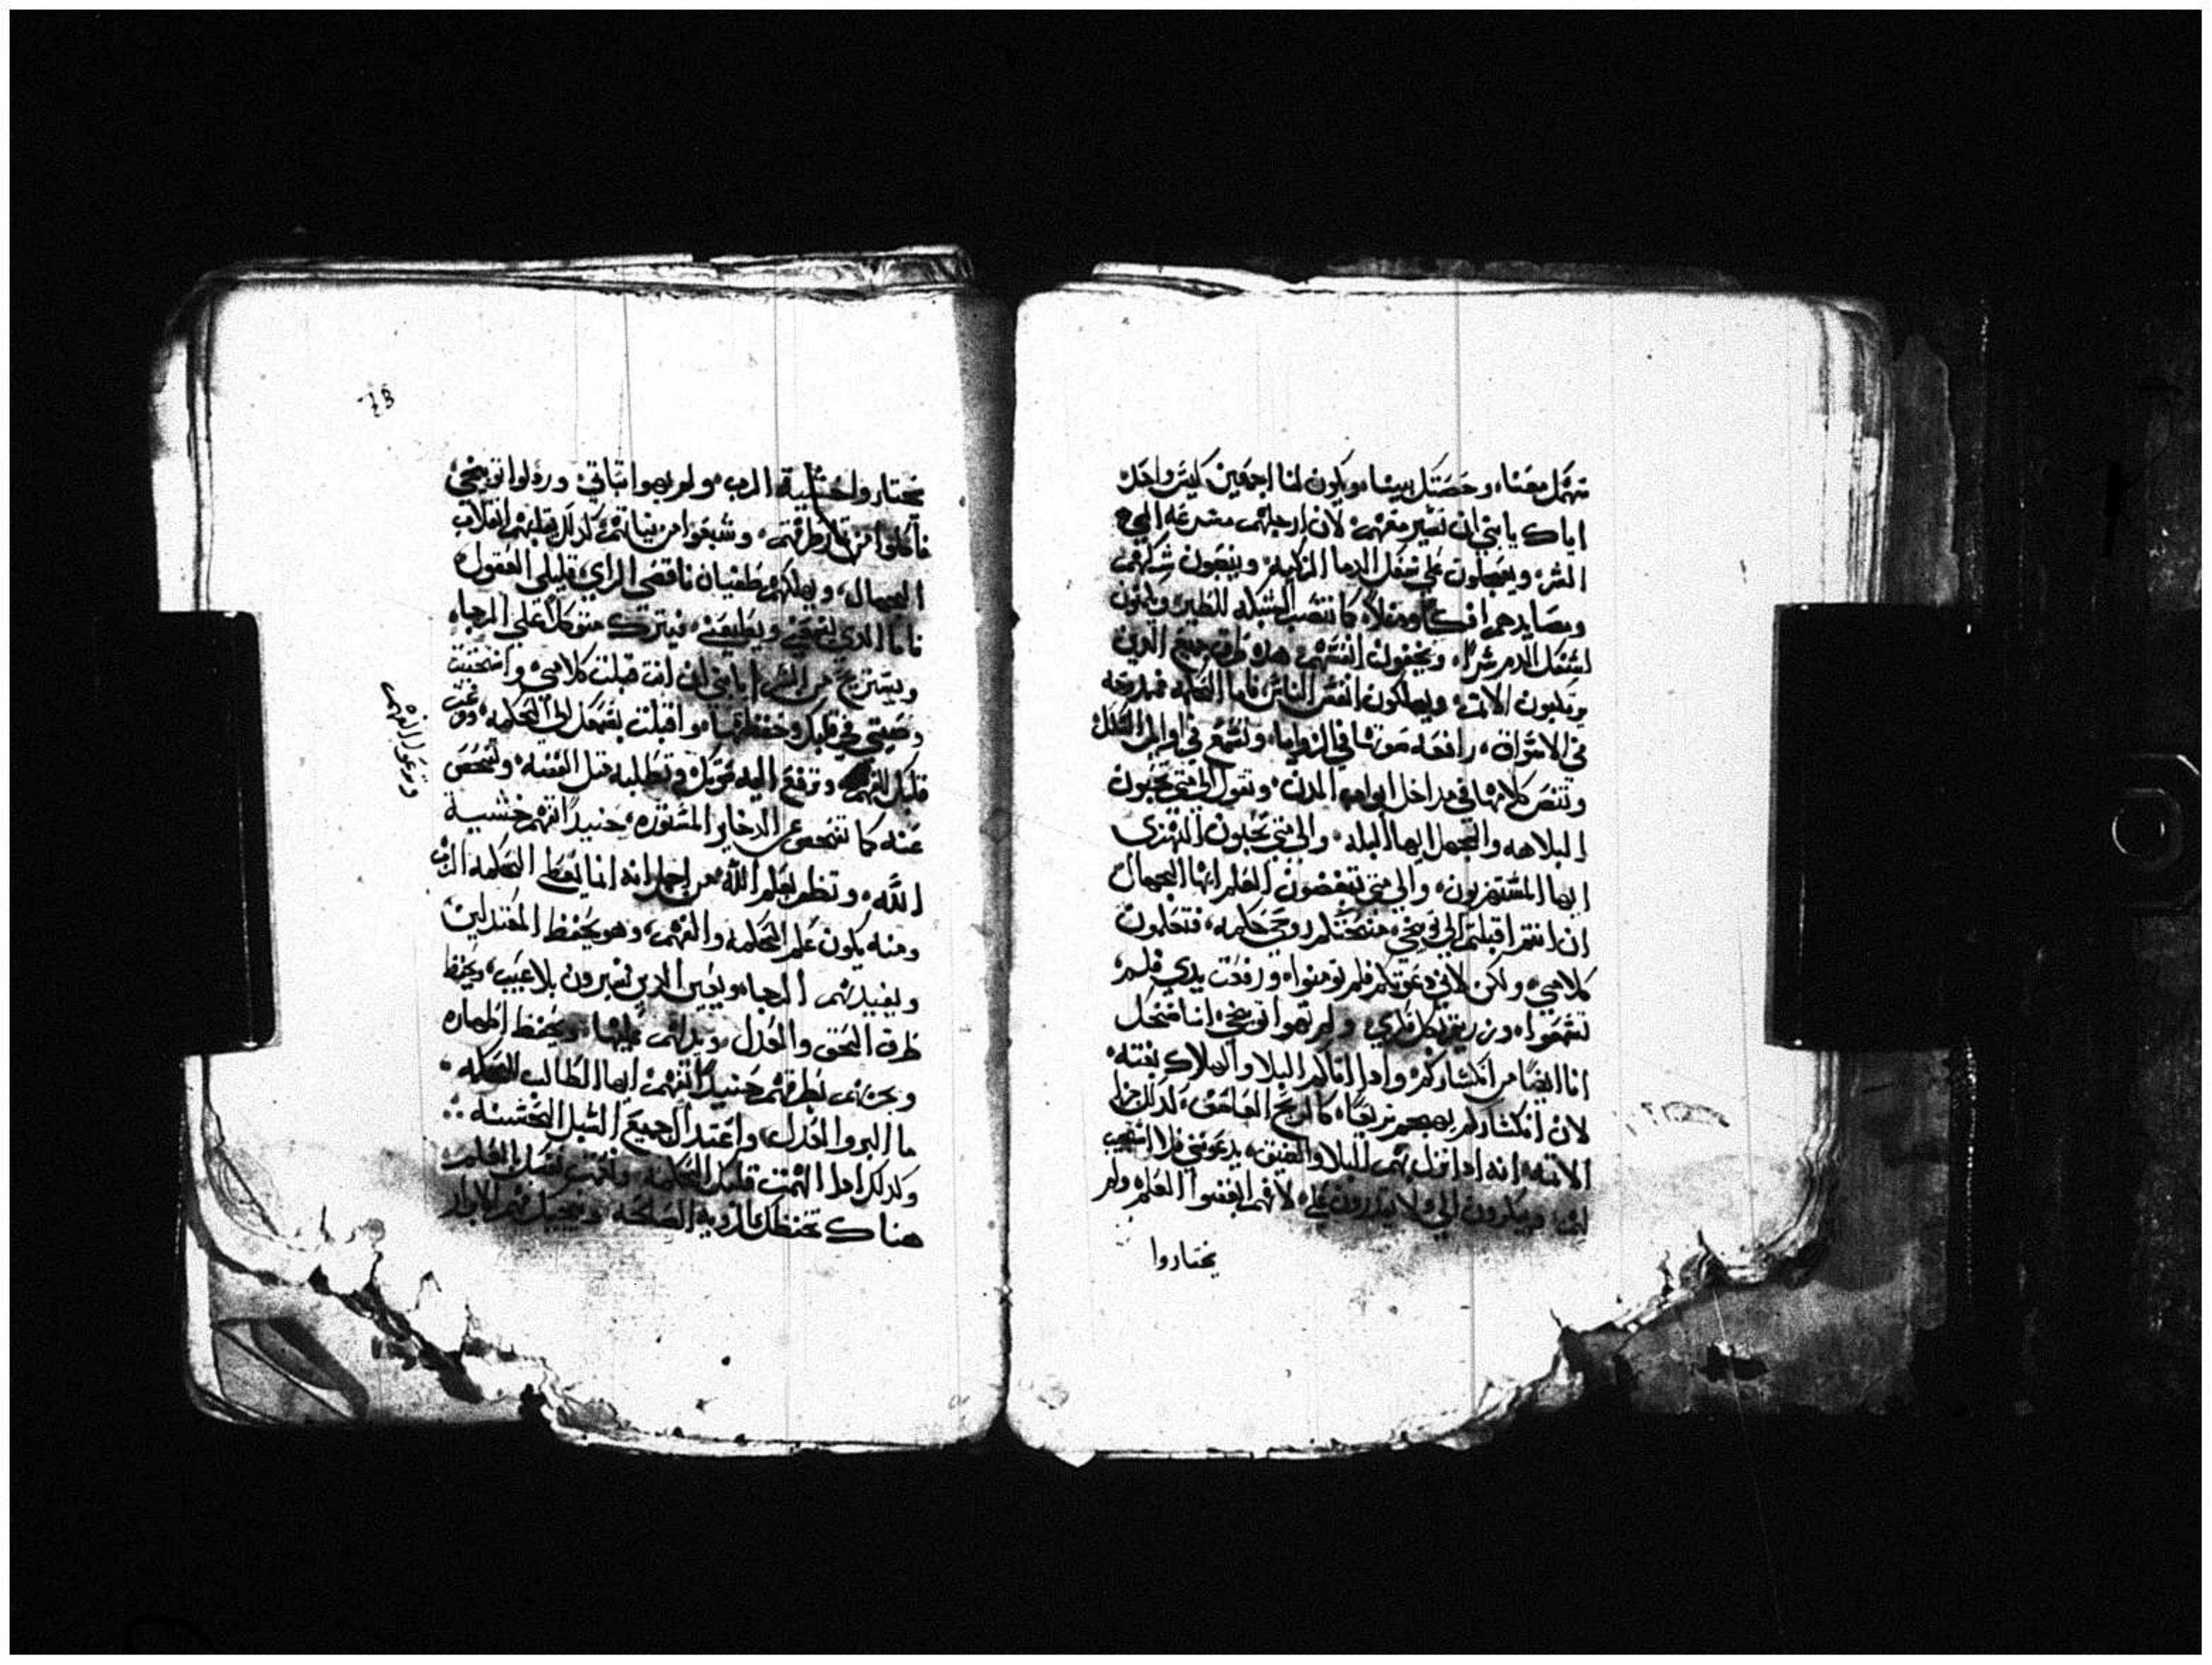 سهمك معنا، وحصتك بيننا، ويكون لنا اجمعين كيس واحد
اياك يابني ان تسير معهم، لان ارجلهم مسرعه الي
الشر، ويعجلون علي سفك الدما الزكيه، وينصبون شباكهم
ومصايدهم افكا كما تنصب الشبكه للطير
لسفك الدم شرا، ويخفون انفسهم، هذه طرق جميع الدين
يرتكبون الاثم، ويهلكون انفس الناس فاما الحكمه
في الاسواق، رافعه صوتها في الزوايا، وتسمع في
وتقص كلامها في مداخل ابواب المدن، وتقول الي متي تحبون
البلاهه والجهل ايها البله، والي متي تحبون التهزي
ايها المستهزيون، والي متي تبغضون العلم ايها الجهال
ان انتم اقبلتم الي توبيخي، منحتكم روحي حكمه، فتعلمون
كلامي، ولكن لاني دعوتكم فلم تومنوا، ورفعت يدي فلم
تفهموا، ولم تهووا توبيخي، انا اضحك
انا ايضا من انكساركم، وادا اتاكم البلا والهلاك بغته
لان انكساركم يهجم سريعا، كالريح العاصف، كدلك
الاتيه، انه ادا نزل بهم البلا والضيق، يدعونني فلا استجيب
لهم، ويبكرون الي ولا يقدرون علي، لانهم ابغضوا العلم، ولم
يختاروا
يختاروا خشية الرب، ولم يهووا تباتي، وردلوا توبيخي
فاكلوا من تمار طرقهم، وشبعوا من نياتهم، كدلك يقتلهم انقلاب
الجهال، ويهلكهم طغيان ناقصي الراي، قليلي العقول
فاما الذي يسمعني ويطيعني، فيترك متوكلا علي الرجا،
ويستريح من الشر، يابني ان انت قبلت كلامي، واختبيت
وصيتي في قلبك وحفظتها، واقبلت بسمعك الي الحكمه،
قلبك للفهم، وترفع اليه صوتك، وتطلبه متل الفضه، وتفحص
عنه كما تفحص عن الدخاير المستوره، حنيدا تفهم خشية
الله، وتظفر بعلم الله من اجل انه انما يعطي الحكمه الرب
ومنه يكون علم الحكمه والفهم، وهو يحفظ المعتدلين
ويفيدهم الرجا، ويعين الدين يسيرون بلا عيب، ويحفظ
طرق الحق والعدل، ويحفظ اطهاره
حنيدا تفهم ايها الطالب الحكمه
ما البر والعدل، واعتدال جميع السبل الحسنه
وكدلك ادا الهمت قلبك الحكمه،
هناك تحفظك الرويه الصالحه
وتدعوا الفهم